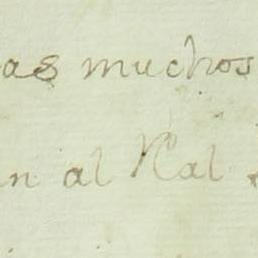 as muchos
n al Real